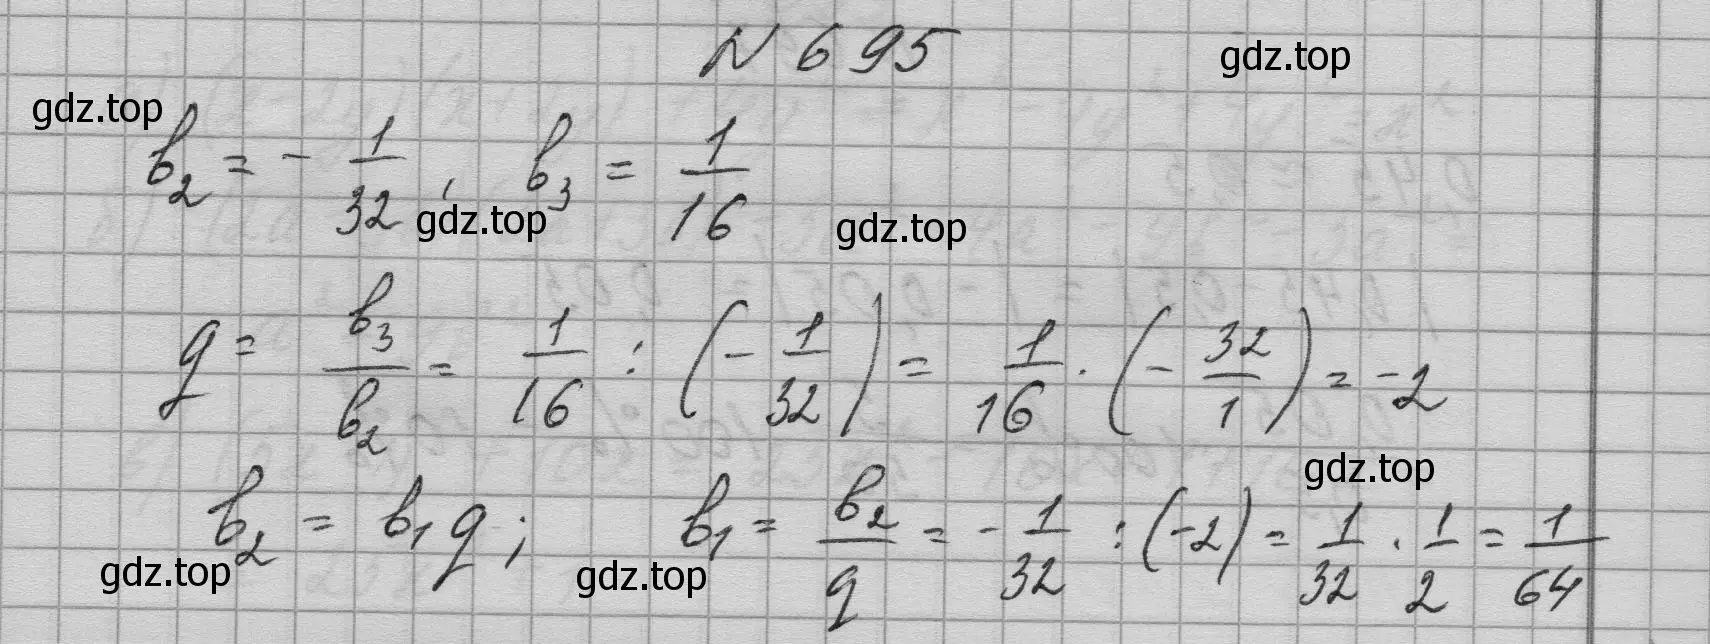 N 695
gdz.top
gdz.top
b₂ = - 1/32, b₃ = 1/16
gdz.top
gdz.top
q = b₃/b₂ = 1/16 : (- 1/32) = 1/16 · (- 32/1) = -2
gdz.top
b₂ = b₁q; b₁ = b₂/q = - 1/32 : (-2) = 1/32 · 1/2 = 1/64
gdz.top
gdz.top